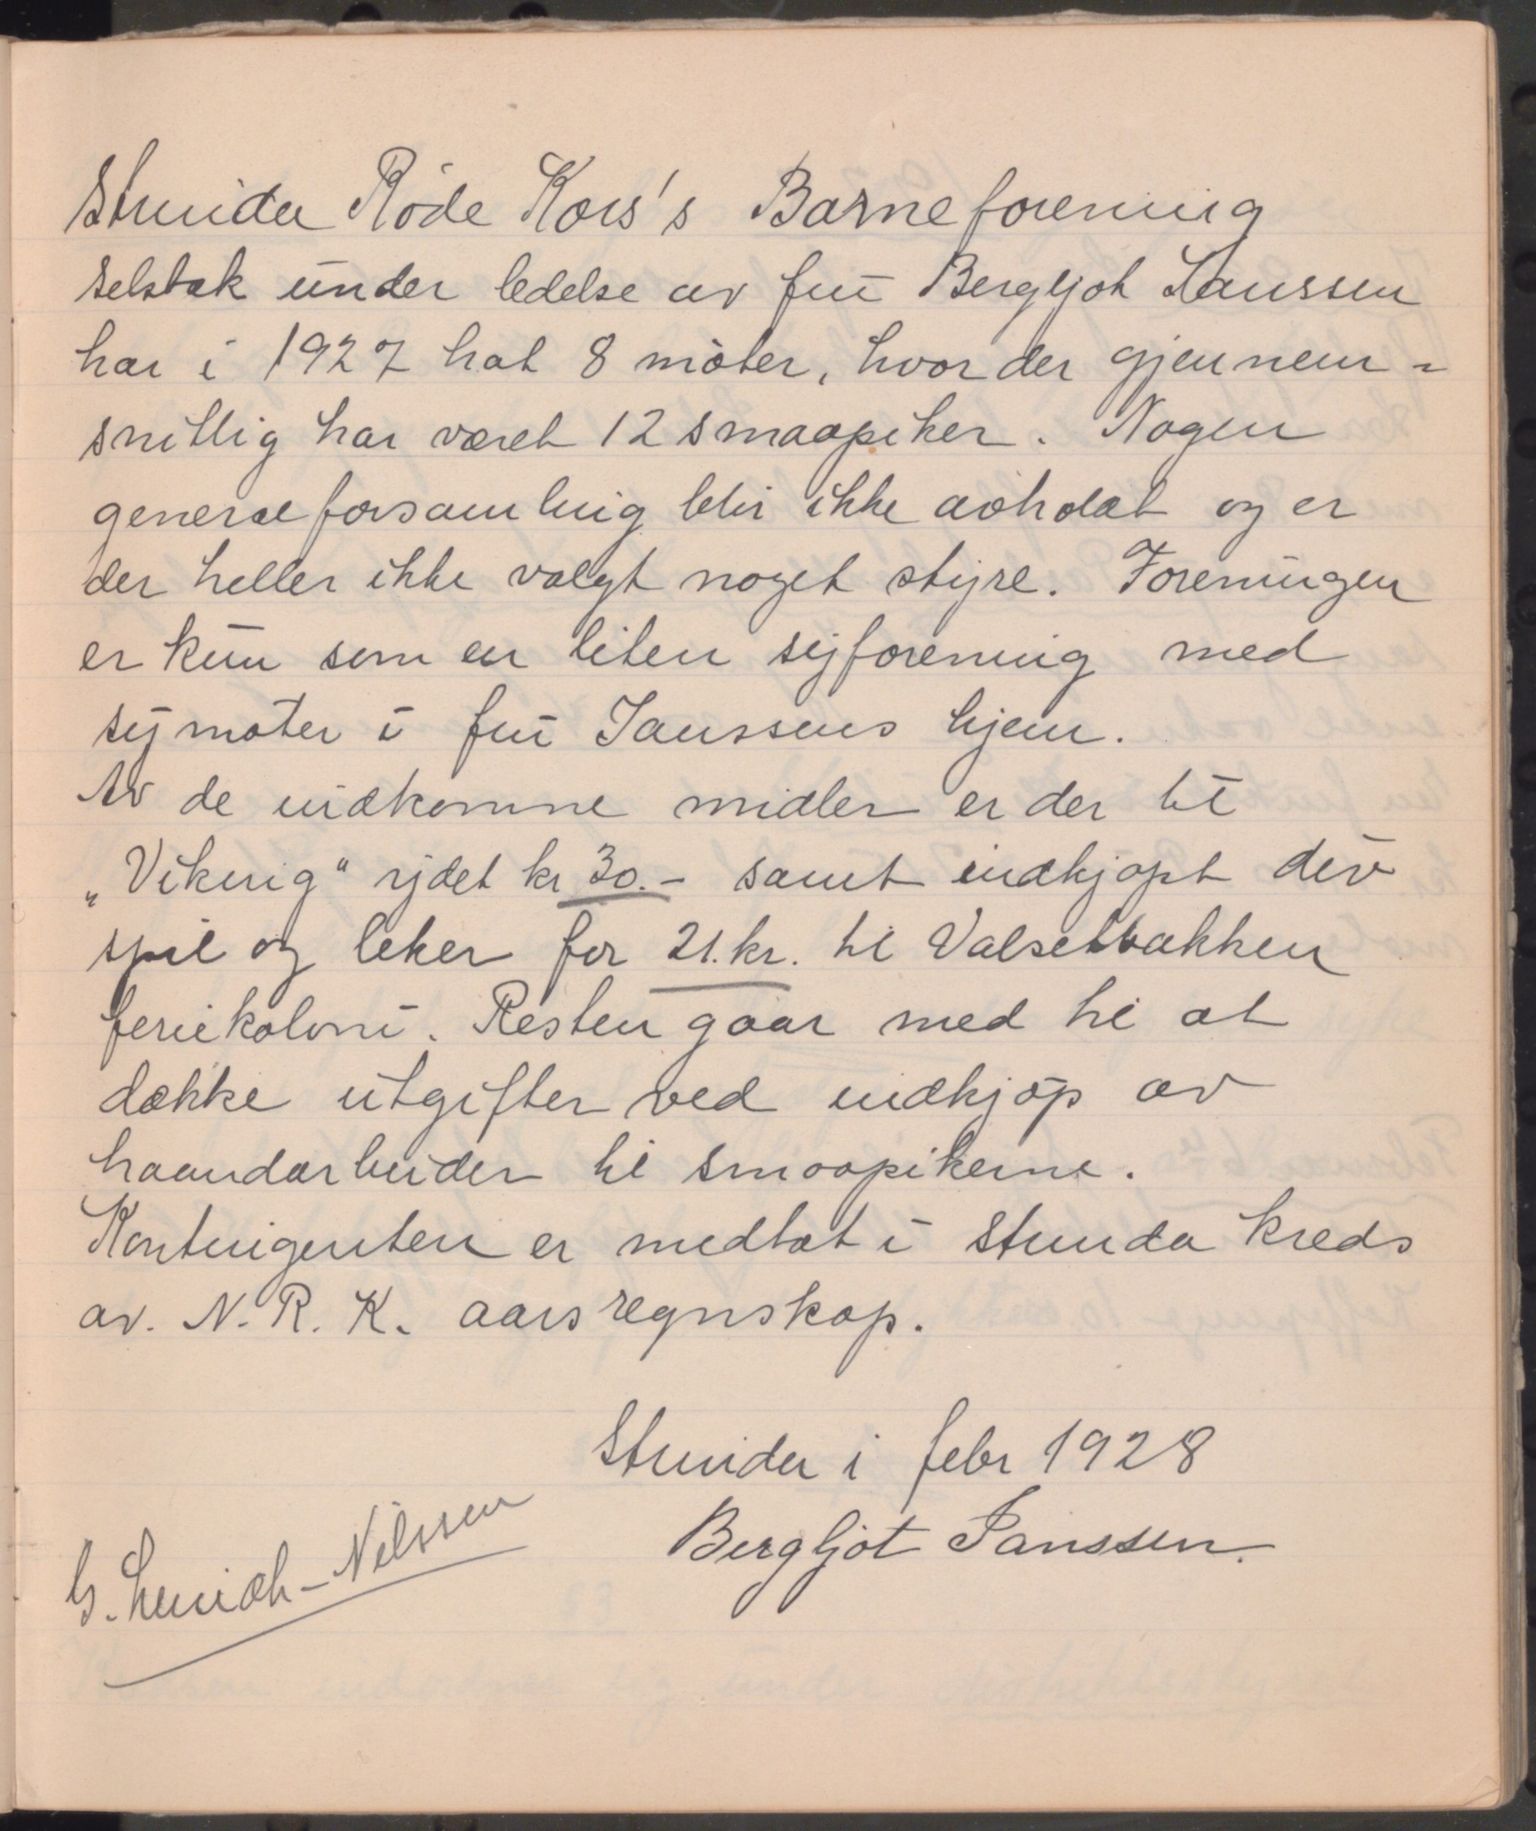 Strinda Røde Kors's Barneforening
Selsbak under ledelse av fru Bergljot Janssen
har i 1927 hat 8 møter, hvor der gjennem-
snitlig har været 12 smaapiker. Nogen
generalforsamling blir ikke avholdt og er
der heller ikke valgt noget styre. Foreningen
er kun som en liten syforening med
symøter i fru Janssens hjem.
Av de indkomne midler er der til
„Viking" ydet kr 30.- samt indkjøpt div
spil og leker for 21.kr. til Valsetbakken
feriekoloni. Resten gaar med til at
dække utgifter ved indkjøp av
haandarbeider til smaapikerne.
Kontingenten er medtat i Strinda kreds
av. N.R.K. aarsregnskap.
Strinda i febr 1928
Bergljot Janssen.
G. Lunich-Nilssen